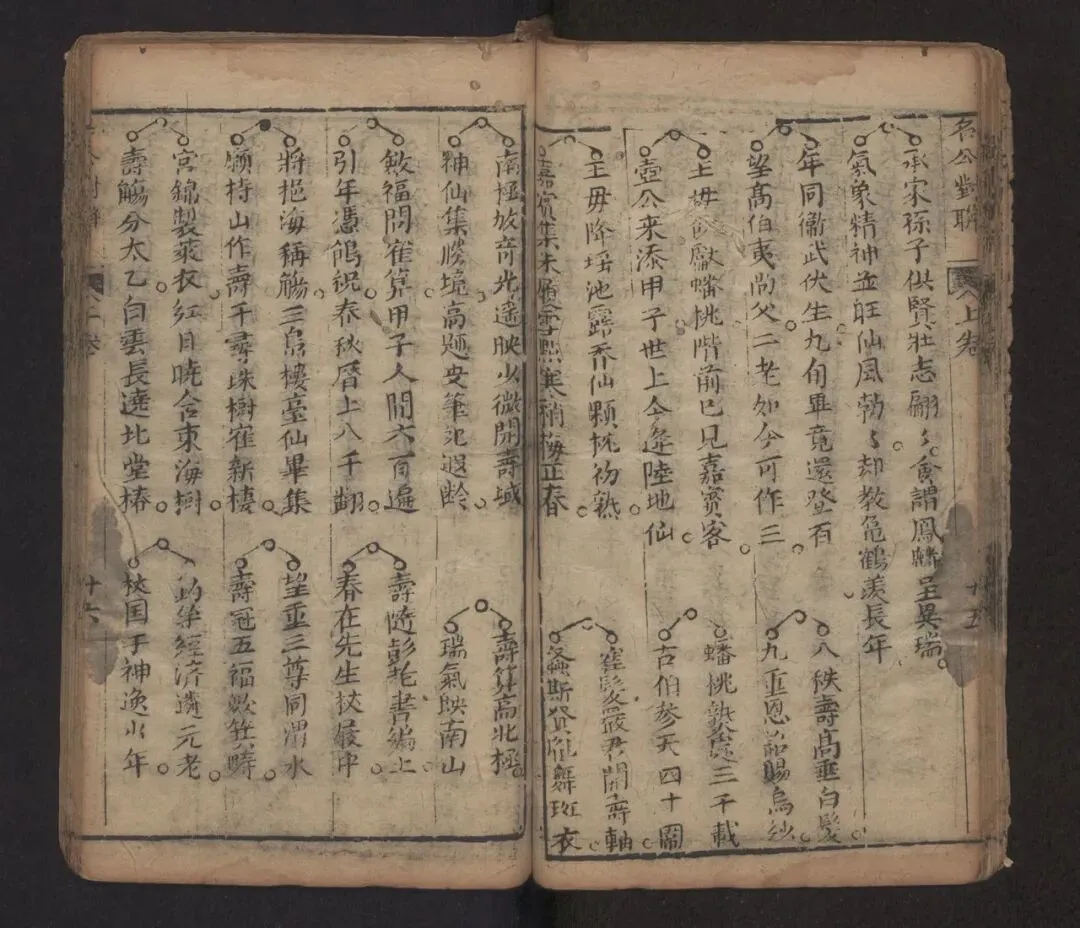 名公對聯
上卷
十五
承家孫子俱賢壯志翩々會謂鳳麟呈異瑞
氣象精神並旺仙風勃々却教龜鶴羨長年
年同衞武伏生九旬畢竟還登百
望高伯夷尚父二老如今可作三
八秩壽高垂白髮
九重恩詔賜烏紗
王母欲獻蟠桃階前已見嘉賓客
壺公来添甲子世上今逢陸地仙
蟠桃熟處三千載
古柏參天四十圍
王毋降瑶池露香仙顆桃初熟
嘉賓集木雪點寒梢梅正春
髮君開壽軸
螽斯舞斑衣
南極放奇光遥映少微開壽域
神仙集勝境高題史筆記遐齡
壽算高北極
瑞氣映南山
斂福問崔算甲子人間六百遍
引年憑鴿祝春秋曆上八千翻
壽隨彭老書編上
春在先生杖屨中
將挹海稱觴三島樓臺仙畢集
願持山作壽千尋珠樹崔新棲
望重三尊同渭水
壽冠五福敘箕疇
宮錦製萊衣紅日曉含東海樹
壽觴分太乙白雲長遶北堂椿
經済遺元老
杖国于神逸少年
上卷
十六